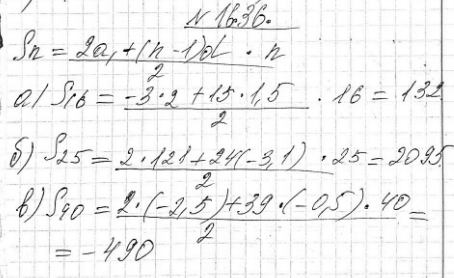 № 16.36.
Sn = (2a₁ + (n - 1)d) / 2 · n
а) S₁₆ = (-3·2 + 15·1,5) / 2 · 16 = 132
б) S₂₅ = (2·121 + 24(-3,1)) / 2 · 25 = 2095
в) S₄₀ = (2·(-2,5) + 39·(-0,5)·40) / 2 =
= -490